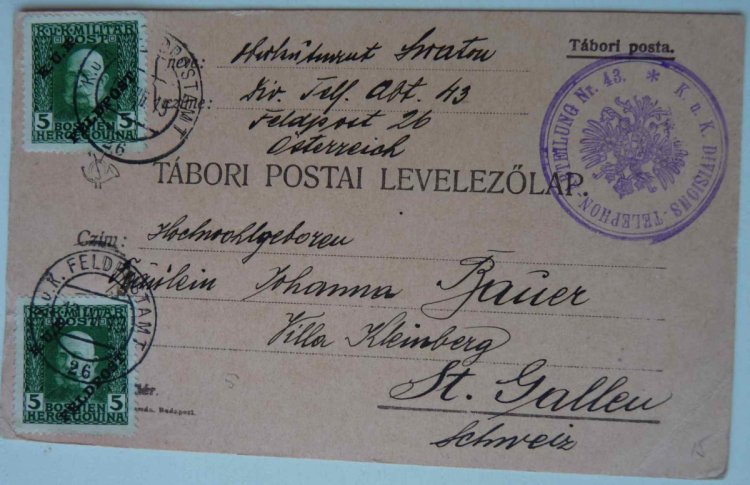 Tábori posta.
neve: Oberleutnant Swaton
czíme: Div. Telf. Abt. 43
Feldpost 26
Österreich
TÁBORI POSTAI LEVELEZŐLAP.
Czim: Hochwohlgeboren
Fräulein Johanna Bauer
Villa Kleinberg
St. Gallen
Schweiz
K. u. K. DIVISIONS-TELEPHON-ABTEILUNG Nr. 43.
K.u.K. MILITÄR
POST
K.U.K.
FELDPOST
5 5
BOSNIEN
HERCEGOVINA
26
K. u. K. FELDPOSTAMT
26
K.u.K. MILITÄR
POST
K.U.K.
FELDPOST
5 5
BOSNIEN
HERCEGOVINA
Budapest.